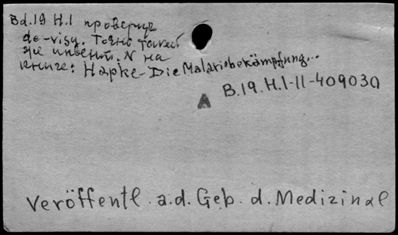 Bd.19 H.1 проверил
de-visu. Точно такой
же инвент. N на
книге: Hapke Die Malariabekämpfung...
B.19.H.1-11-409030
A
Veröffentl. a.d. Geb. d. Medizinal